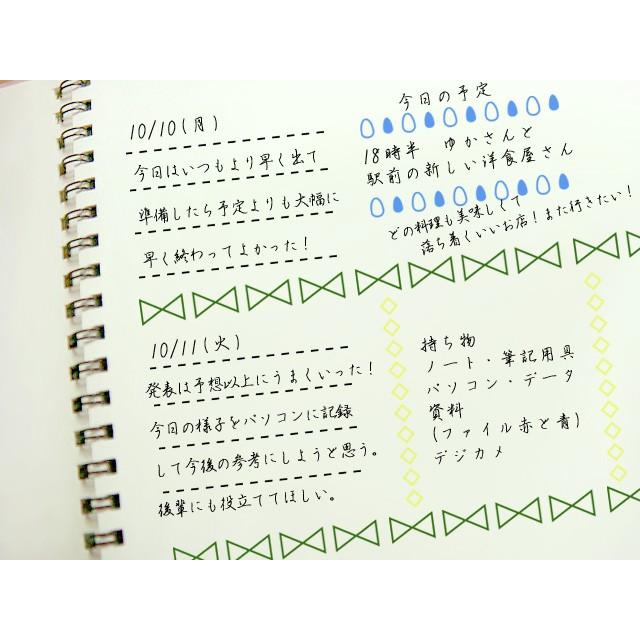 10/10(月)
今日はいつもより早く出て
準備したら予定よりも大幅に
早く終わってよかった！
今日の予定
18時半 ゆかさんと
駅前の新しい洋食屋さん
どの料理も美味しくて
落ち着くいいお店！また行きたい！
10/11(火)
発表は予想以上にうまくいった！
今日の様子をパソコンに記録
して今後の参考にしようと思う。
後輩にも役立ててほしい。
持ち物
ノート・筆記用具
パソコン・データ
資料
(ファイル赤と青)
デジカメ